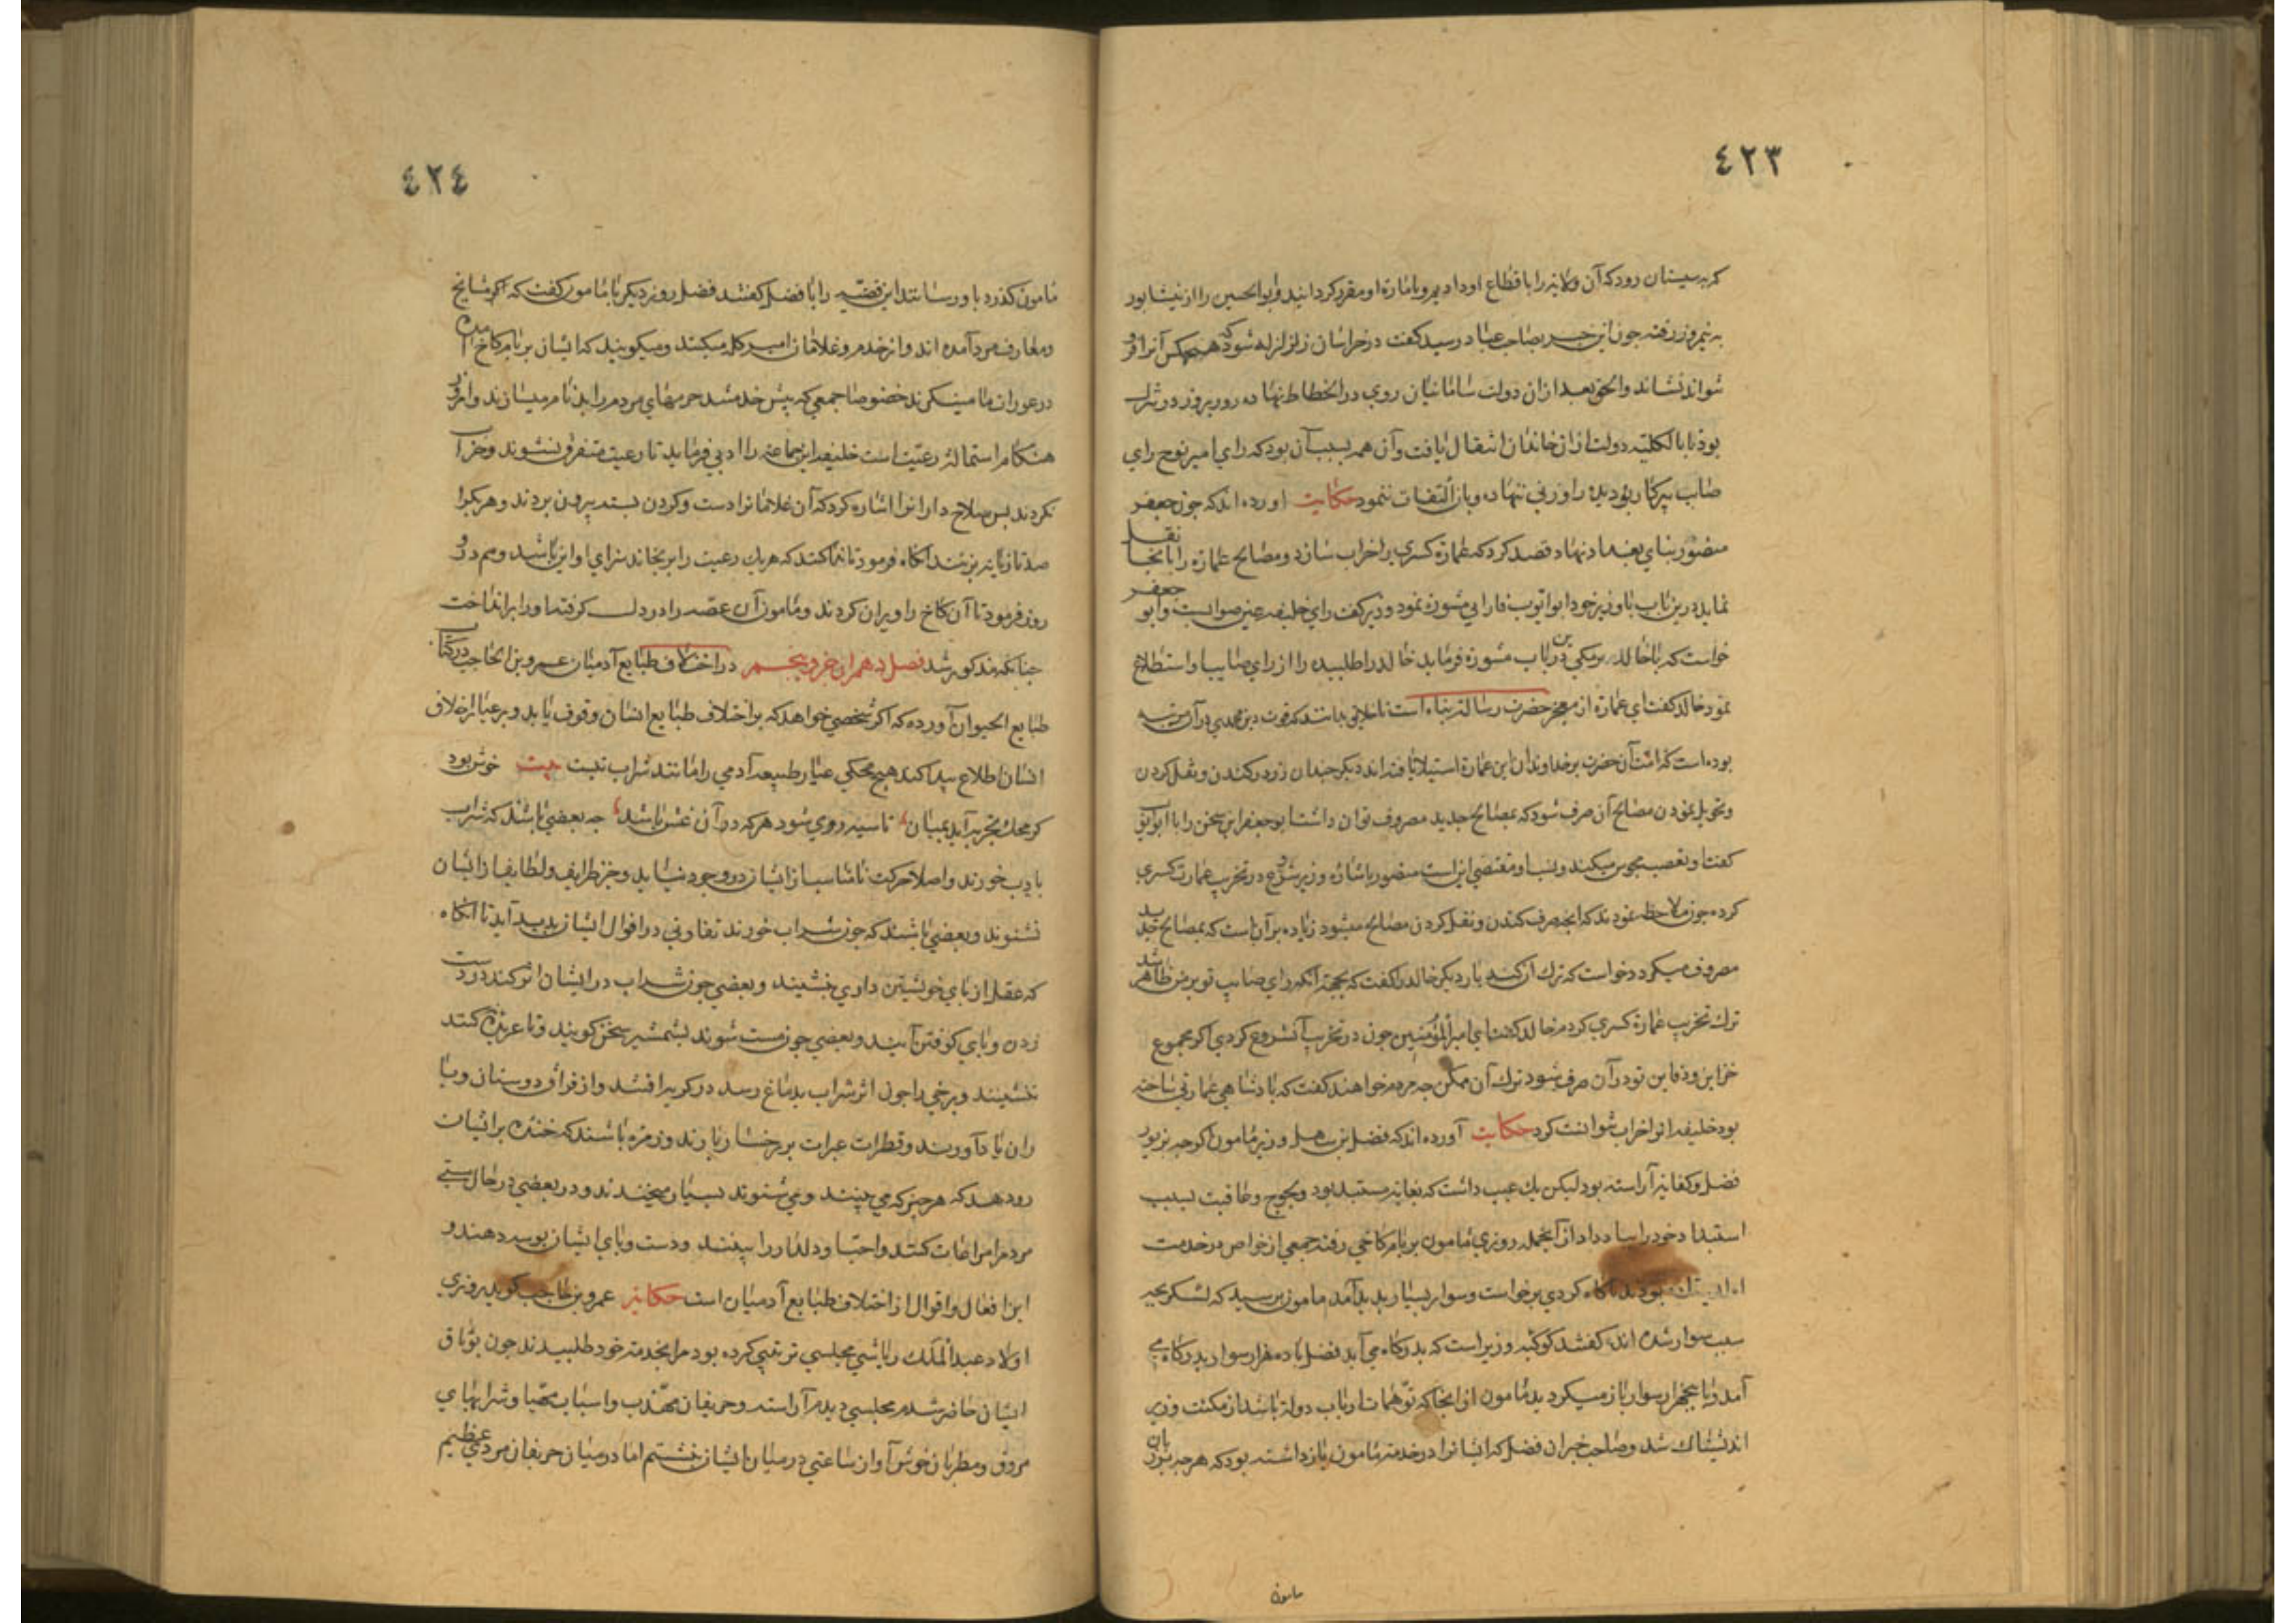 ٤٢٣
که بسیستان رود که آن ولایة را باقطاع او دادیم و بامارة او مقرر کردانید و ابوالحسین را از نیشابور
به نیمروز رفته جون این خبر بصاحب عباد رسید کفت در خراسان زلزله شود که هیچکس آنرا فرو
نتواند نشاند و الحق بعد ازان دولت سامانیان روی در انحطاط نهاد و روز بروز در تنزل
بود تا بالکلیه دولت ازان خاندان انتقال یافت و آن همه بسبب آن بود که رای امیر نوح رای
صاحب پیرکار بود دیده را وزنی ننهاد و بازو التفات ننمود حکایت اورده اند که جون جعفر
منصور بنای بغداد نهاد قصد کرد که عمارة کسری را خراب سازد و مصالح عمارة را بانجا نقل
نماید درین باب با وزیر خود ابو ایوب مشورت نمود وزیر کفت رای خلیفه عین صوابست و ابو جعفر
خواست که با خالد برمکی درین باب مشورة فرماید خالد را طلبیده را از رای صایب او استطلاع
نمود خالد کفت ای عمارة از معجز حضرت رسالت پناه است تا خلایق بدانند که قوت دین محمدی در آن مرتبه
بوده است که امت آن حضرت بر خداوندان این عمارة استیلا یافته اند دیکر جندان زر در کندن و نقل کردن
و تحویل نمودن مصالح آن صرف شود که بمصالح جدید مصروف توان داشت ابو جعفر این سخن را با ابو ایوب
کفت او تعصب مجوس میکند و نسب او مقتضی این است منصور باشاره وزیر شروع در تخریب عمارت کسری
کرده جون ملاحظه نمودند که آنچه صرف کندن و نقل کردن مصالح میشود زیاده بر آن است که بمصالح جدید
مصروف میکردد خواست که ترك آن کند بار دیکر خالد را کفت که بجهة آنکه رای صایب تو بر من ظاهر شد
ترك تخریب عمارة کسری کردم خالد کفت ای امیرالمؤمنین جون در تخریب آن شروع کردی اکر مجموع
خزاین و دفاین تو در آن صرف شود ترك آن مکن جه مردم خواهند کفت که پادشاهی عمارتی ساخته
بود خلیفه انرا خراب نتوانست کرد حکایت آورده اند که فضل بن سهل وزیر مامون اکرجه بزیور
فضل و کفایة آراسته بود لیکن یك عیب داشت که بغایة مستبد بود و لجوج و عاقبت بسبب
استبداد خود را بباد داد از آنجمله روزی مامون بر بام کاخی رفته جمعی از خواص در خدمت
بودند ناکاه کردی برخواست و سوار بسیار پدید آمد مامون پرسید که لشکر بجه
سبب سوار شده اند کفتند کوکبه وزیر است که بدرکاه می آید فضل با ده هزار سوار بدرکاه می
آمد و با پنجهزار سوار باز میکردید مامون از آنجا که توهمات ارباب دولة باشد از مکنت وزیر
اندیشناك شد و صاحب خبران فضل که ایشانرا در خدمة مامون بازداشته بود که هرجه بر زبان
مامون
٤٢٤
مامون کذرد باو رسانند این قضیه را با فضل کفتند فضل روز دیکر با مامون کفت که اکر مشایخ
و معارف مرو آمده اند و از خدم و غلامان امیر کله میکنند و میکویند که ایشان بر بام کاخ آمده
در عوران ما مینکرند خصوصا جمعی که پیش خدمتند حرمهای مردم را بدنام میسازند و امروز
هنکام استمالة رعیت است خلیفه این جماعة را ادبی فرماید تا رعیت متفرق نشوند و خراب
نکردند پس سلاح دارانرا اشاره کرد که آن غلامانرا دست و کردن بسته بیرون بردند و هر یکرا
صد تازیانه بزنند انکاه فرمود تا ندا کنند که هر یك رعیت را برنجاند سزای او این باشد و هم در
روز فرمود تا آن کاخ را ویران کردند و مامون آن غصه را در دل کرفت و اورا برانداخت
جنانکه مذکور شد فصل دهم از جزو پنجم در اختلاف طبایع آدمیان عمرو بن الحاجب در کتاب
طبایع الحیوان آورده که اکر شخصی خواهد که بر اختلاف طبایع انسان وقوف یابد و بر عیار اخلاق
انسان اطلاع پیدا کند هیچ محکی عیار طبیعة آدمی را مانند شراب نیست بیت خوش بود
کر محك تجربه آید بمیان تا سیه روی شود هر که در آن غش باشد جه بعضی باشند که شراب
بادب خورند و اصلا حرکت نامناسب از ایشان در وجود نیاید و جز ظرایف و لطایف از ایشان
نشنوند و بعضی باشند که جون شراب خورند تفاوتی در اقوال ایشان پدید آید تا انکاه
که عقل از پای خویشتن داری بنشیند و بعضی جون شراب در ایشان اثر کند در دست
زدن و پای کوفتن آیند و بعضی جون مست شوند بشمشیر سخن کویند و تا عربده نکنند
ننشینند و برخی را جون اثر شراب بدماغ رسد در کریه افتند و از فراق دوستان و یا
ران یاد آورند و قطرات عبرات بر رخسار بارند و زمره باشند که خنده بر ایشان
رو دهد که هر جیز که می بینند و می شنوند بسیار میخندند و در بعضی در حال مستی
مردم را مراعات کنند و احباء و دلدار را بینند و دست و پای ایشان بوسه دهند و
این افعال و اقوال از اختلاف طبایع آدمیان است حکایة عمرو بن حاجب کوید روزی
اولاد عبدالملك ریاشی مجلسی ترتیب کرده بود مرا بخدمة خود طلبیدند جون بوثاق
ایشان حاضر شدم مجلسی دیدم آراسته و حریفان مهذب و اسباب مهیا و شرابهای
مروق و مطربان خوش آواز ساعتی در میان ایشان نشستم اما در میان حریفان مردی عظیم